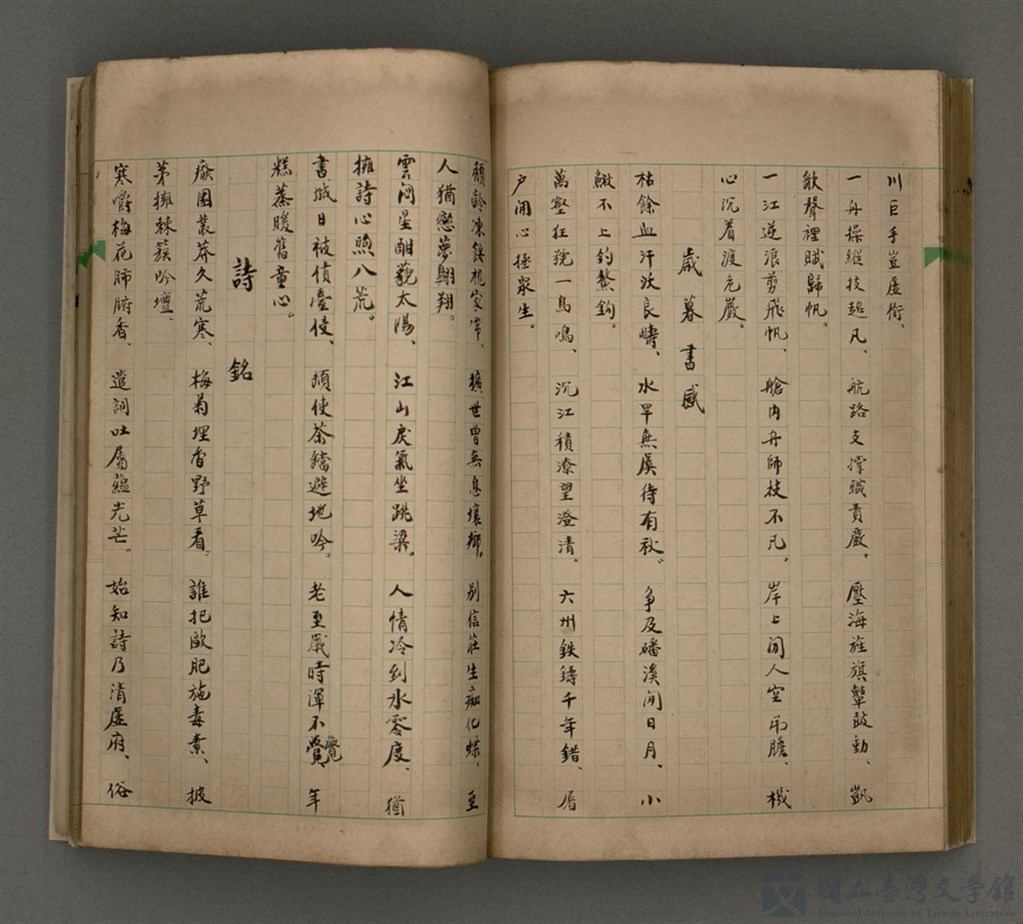 川巨手豈虛銜、
一舟操縱技超凡、航路支撐職責嚴。壓海旌旗鼙鼓動、凱
歌聲裡賦歸帆。
一江逆浪剪飛帆、艙內舟師技不凡。岸上閒人空吊膽、機
心沉着渡危巖。
歲暮書感
枯餘血汗沃良疇、水旱無虞待有秋。爭及磻溪閒日月、小
鰍不上釣鰲鉤。
萬壑狂號一鳥鳴、沉江積潦望澄清。六州鉄鑄千年錯、居
戶開心拯眾生。
頹齡凍餒視家常、擴世曾無息壤鄉。別信莊生痴化蝶、至
人猶戀夢翱翔。
雲罔星酣藐太陽、江山戾氣坐跳梁。人情冷到冰零度、猶
擁詩心煦八荒。
書城日被債臺侵、頻使茶鐺避地吟。老至歲時渾不覺、年
糕蒸暖舊童心。
詩銘
廢園叢莽久荒寒、梅菊埋香野草看。誰把歐肥施毒素、披
茅擁棘簇吟壇。
寒嚼梅花肺腑香、遣詞吐屬蘊光芒。始知詩乃清虛府、俗
國立臺灣文學館
National Museum of Taiwan Literature